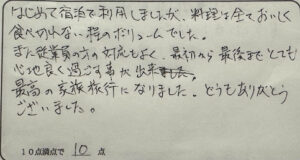 はじめて宿泊で利用しましたが、料理は全ておいしく
食べ切れない程のボリュームでした。
また従業員の方の対応もよく、最初から最後までとても
心地良く過ごす事が出来ました。
最高の家族旅行になりました。どうもありがとう
ございました。
10点満点で 10 点